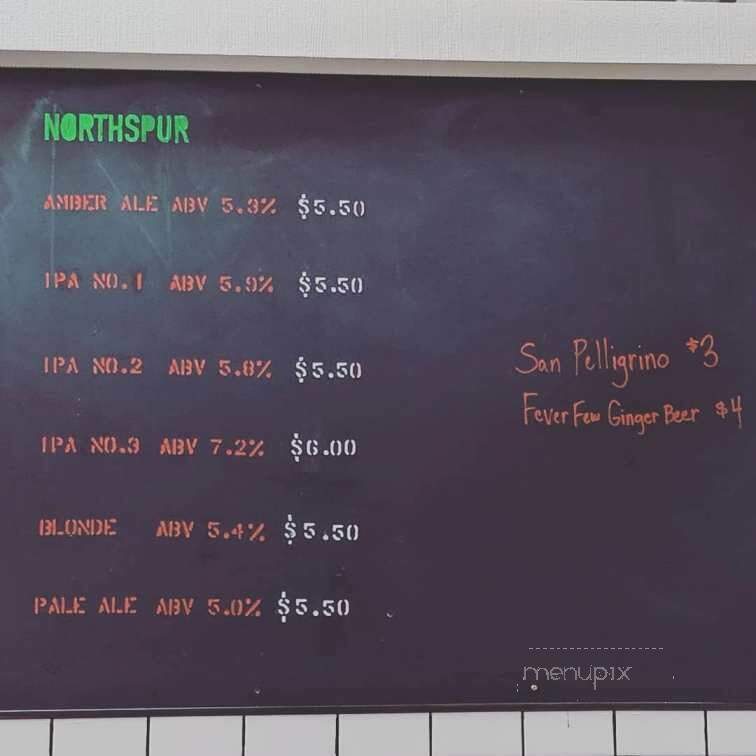 NORTHSPUR
AMBER ALE ABV 5.3% $5.50
IPA NO.1 ABV 5.9% $5.50
IPA NO.2 ABV 5.8% $5.50
IPA NO.3 ABV 7.2% $6.00
BLONDE ABV 5.4% $5.50
PALE ALE ABV 5.0% $5.50
San Pelligrino $3
Fever Few Ginger Beer $4
menupix